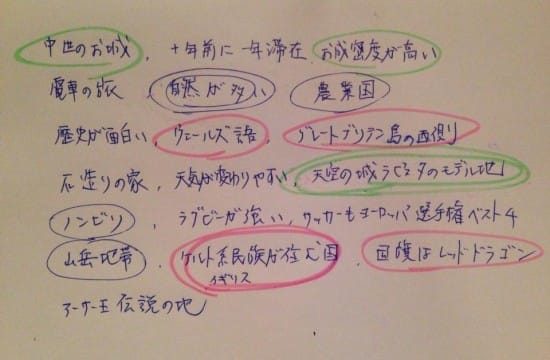 中世のお城、十年前に一年滞在、お城密度が高い
電車の旅、自然が多い、農業国
歴史が面白い、ウェールズ語、グレートブリテン島の西側
石造りの家、天気が変わりやすい、天空の城ラピュタのモデル地
ノンビリ、ラグビーが強い、サッカーもヨーロッパ選手権ベスト4
山岳地帯、ケルト系民族が住む国、国旗はレッドドラゴン
イギリス
アーサー王伝説の地